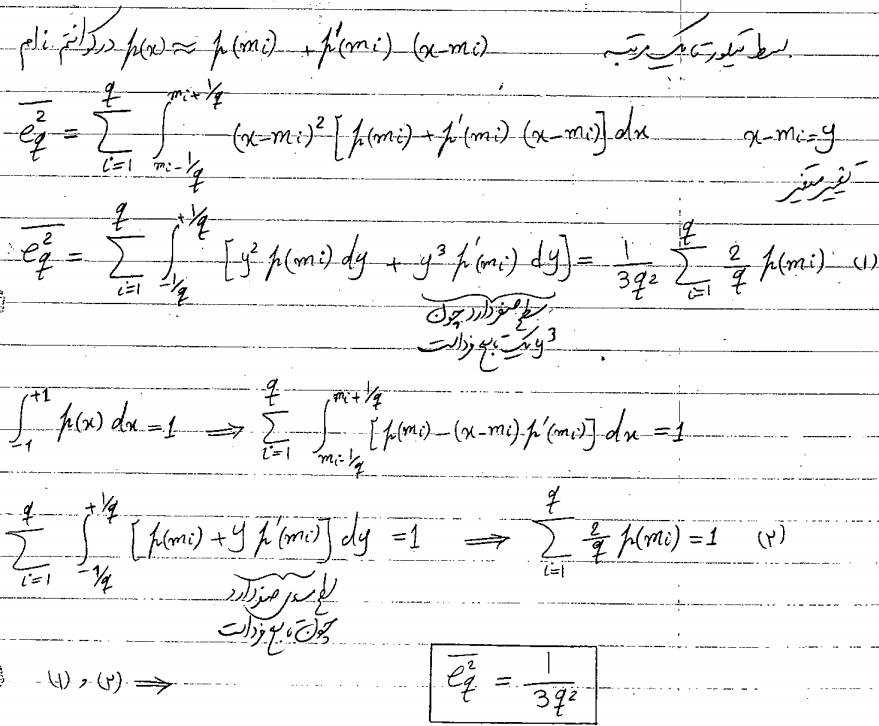 بسط تیلور تا یک مرتبه p(x) ≈ p(mi) + p'(mi) (x-mi) در کوانتم i ام
e_q^2 = Σ_{i=1}^{q} ∫_{mi-1/q}^{mi+1/q} (x-mi)^2 [p(mi) + p'(mi) (x-mi)] dx    x-mi = y
تغییر متغیر
e_q^2 = Σ_{i=1}^{q} ∫_{-1/q}^{+1/q} [y^2 p(mi) dy + y^3 p'(mi) dy] = 1/3q^2 Σ_{i=1}^{q} 2/q p(mi) (1)
سطح صفر دارد چون
y^3 یک تابع فرد است
∫_{-1}^{+1} p(x) dx = 1 ⟹ Σ_{i=1}^{q} ∫_{mi-1/q}^{mi+1/q} [p(mi) - (x-mi) . p'(mi)] dx = 1
Σ_{i=1}^{q} ∫_{-1/q}^{+1/q} [p(mi) + y p'(mi)] dy = 1 ⟹ Σ_{i=1}^{q} 2/q p(mi) = 1 (۲)
صفر دارد
چون تابع فرد است
(1) , (۲) ⟹ e_q^2 = 1/3q^2